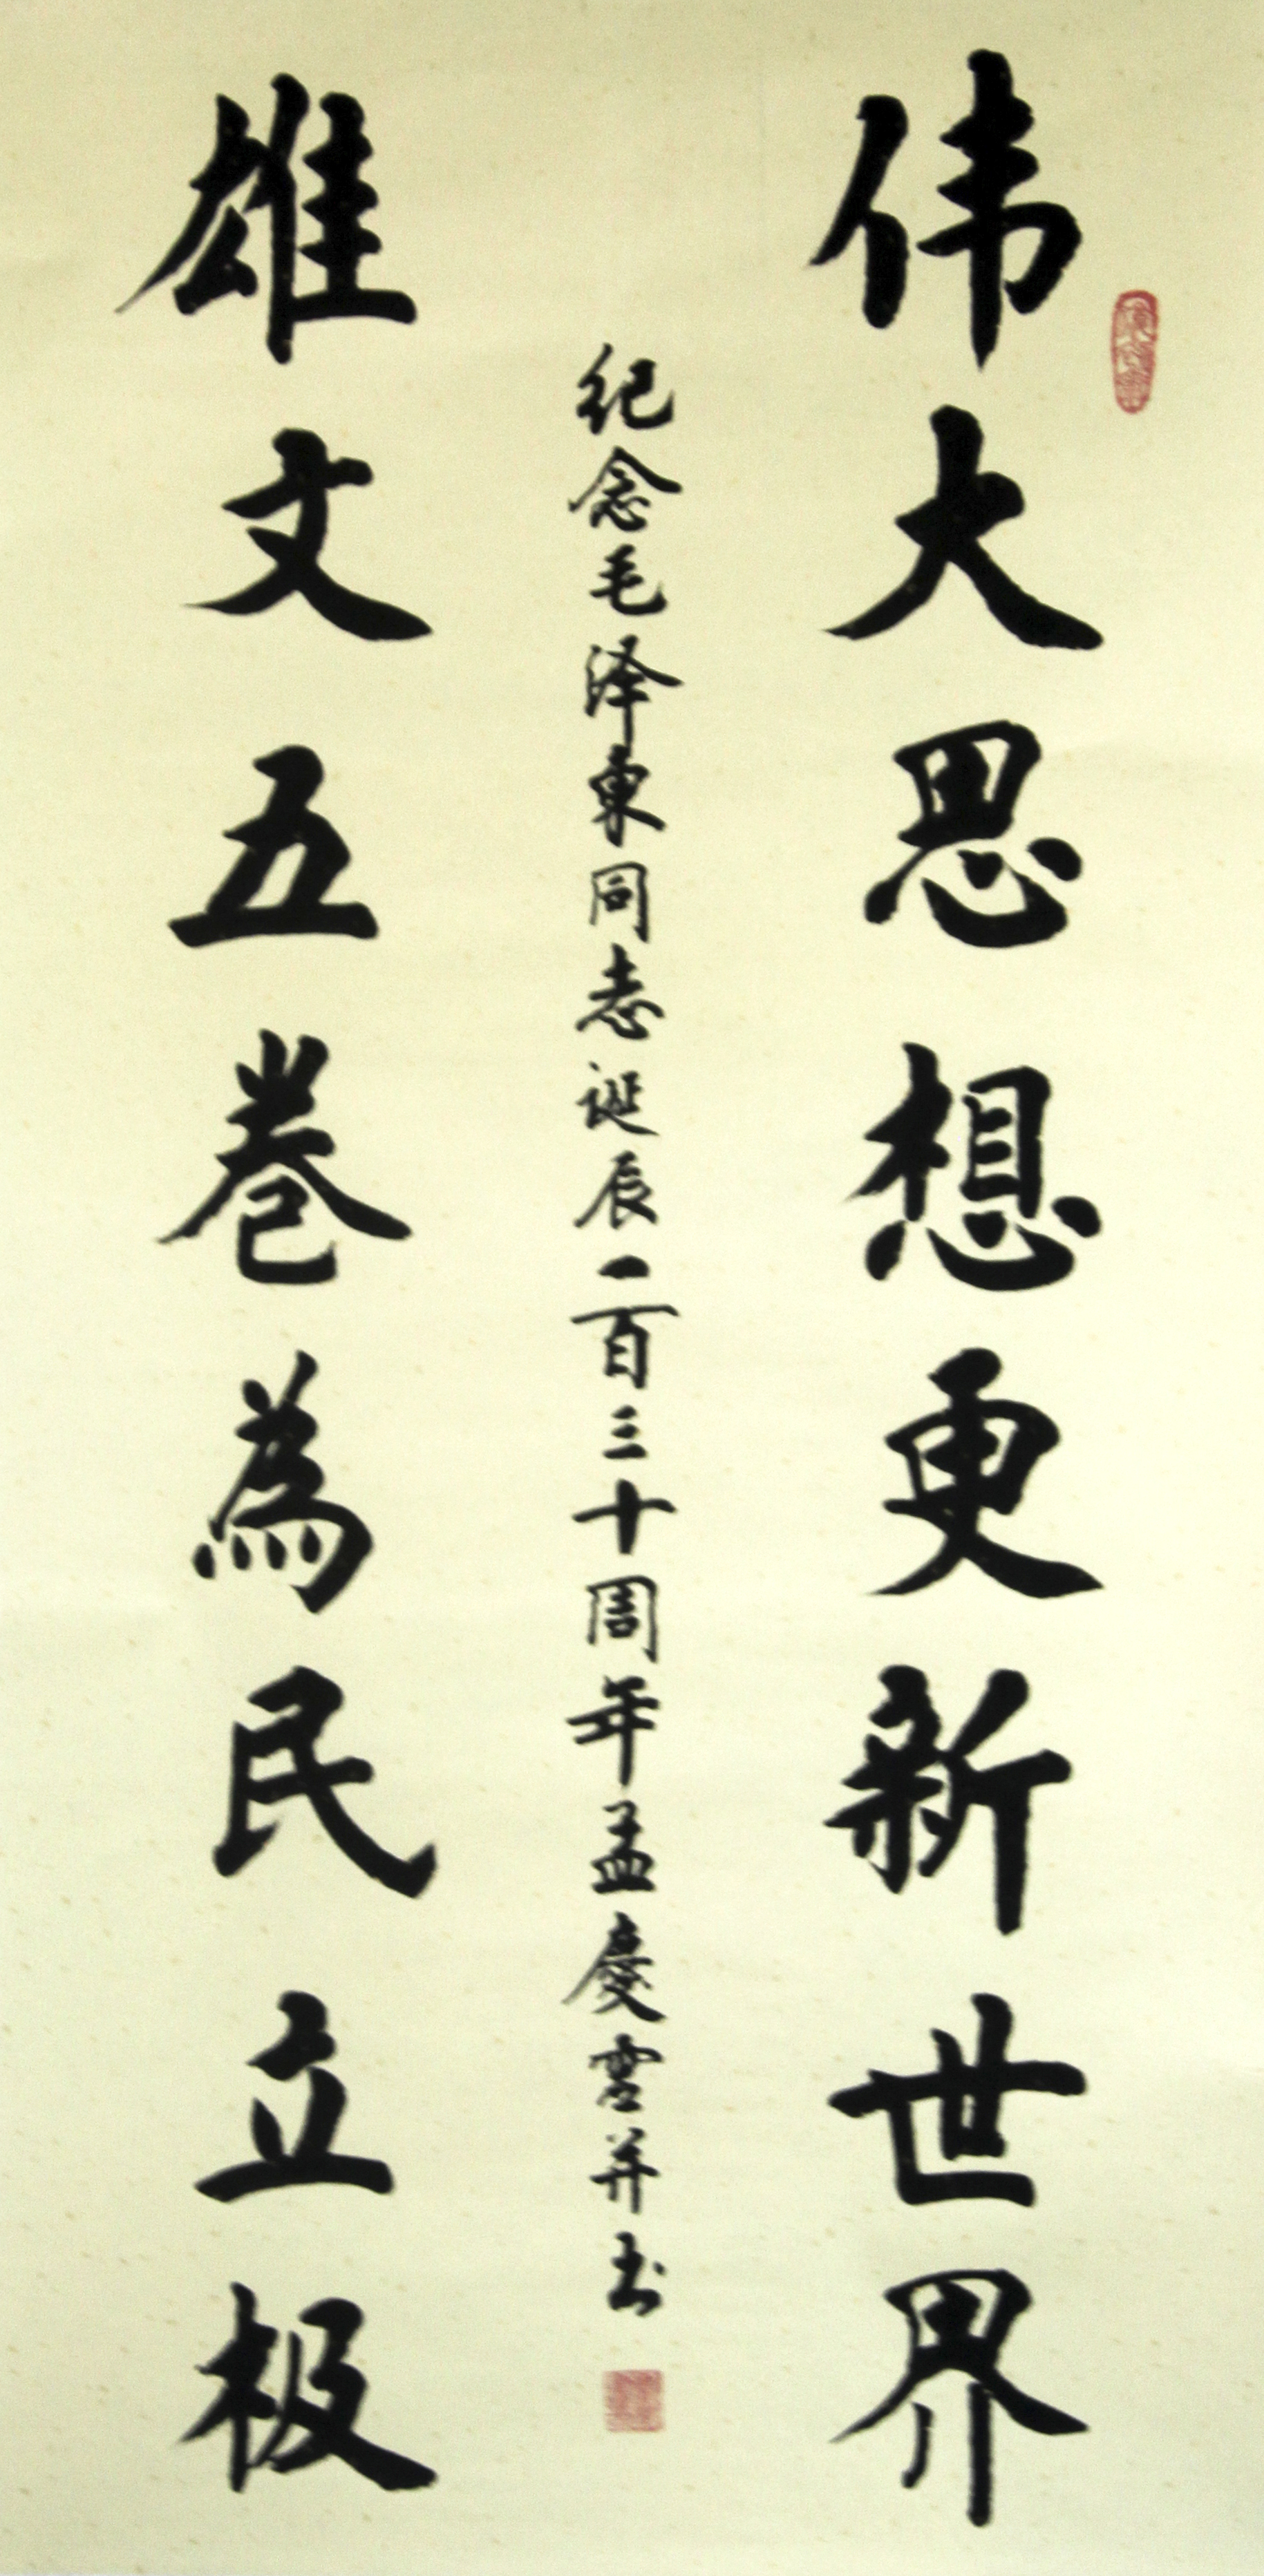 伟大思想更新世界
纪念毛泽東同志诞辰一百三十周年孟慶雲并书
雄文五卷為民立极